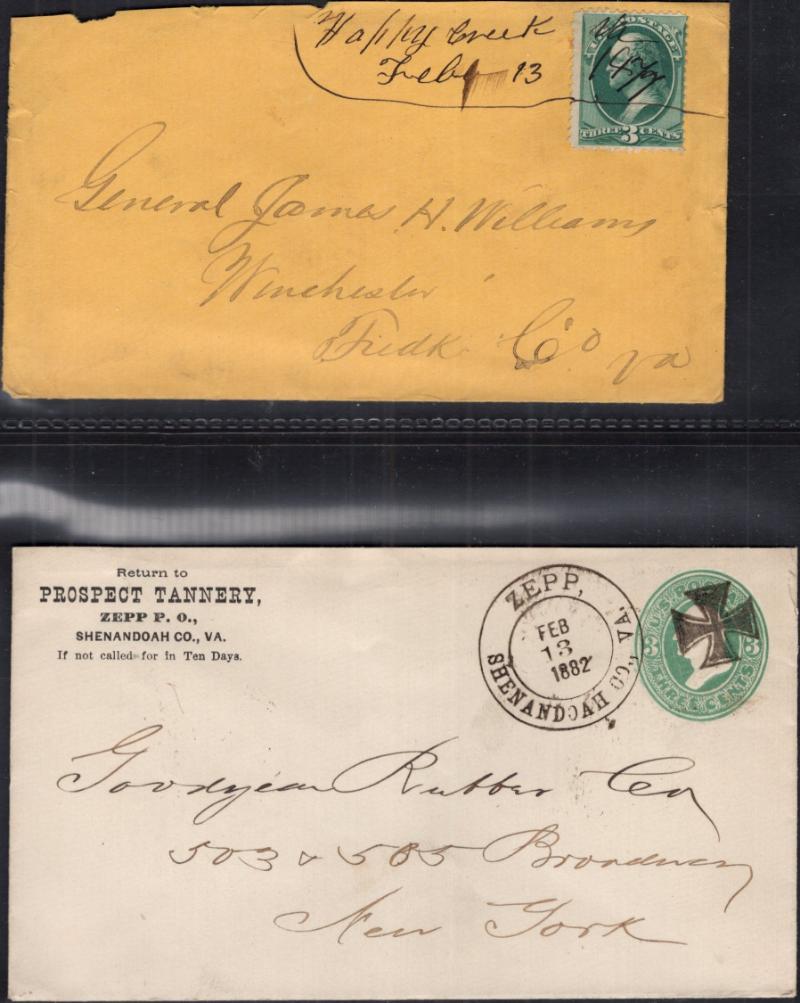 Happy Creek Va
Feby 13 1877
U.S. POSTAGE
THREE 3 CENTS
General James H. Williams
Winchester
Fredk Co Va
Return to
PROSPECT TANNERY,
ZEPP P. O.,
SHENANDOAH CO., VA.
If not called for in Ten Days.
ZEPP, VA.
FEB
13
1882
SHENANDOAH CO.,
U.S. POSTAGE
3 3
THREE CENTS
Goodyear Rubber Co
503 & 505 Broadway
New York